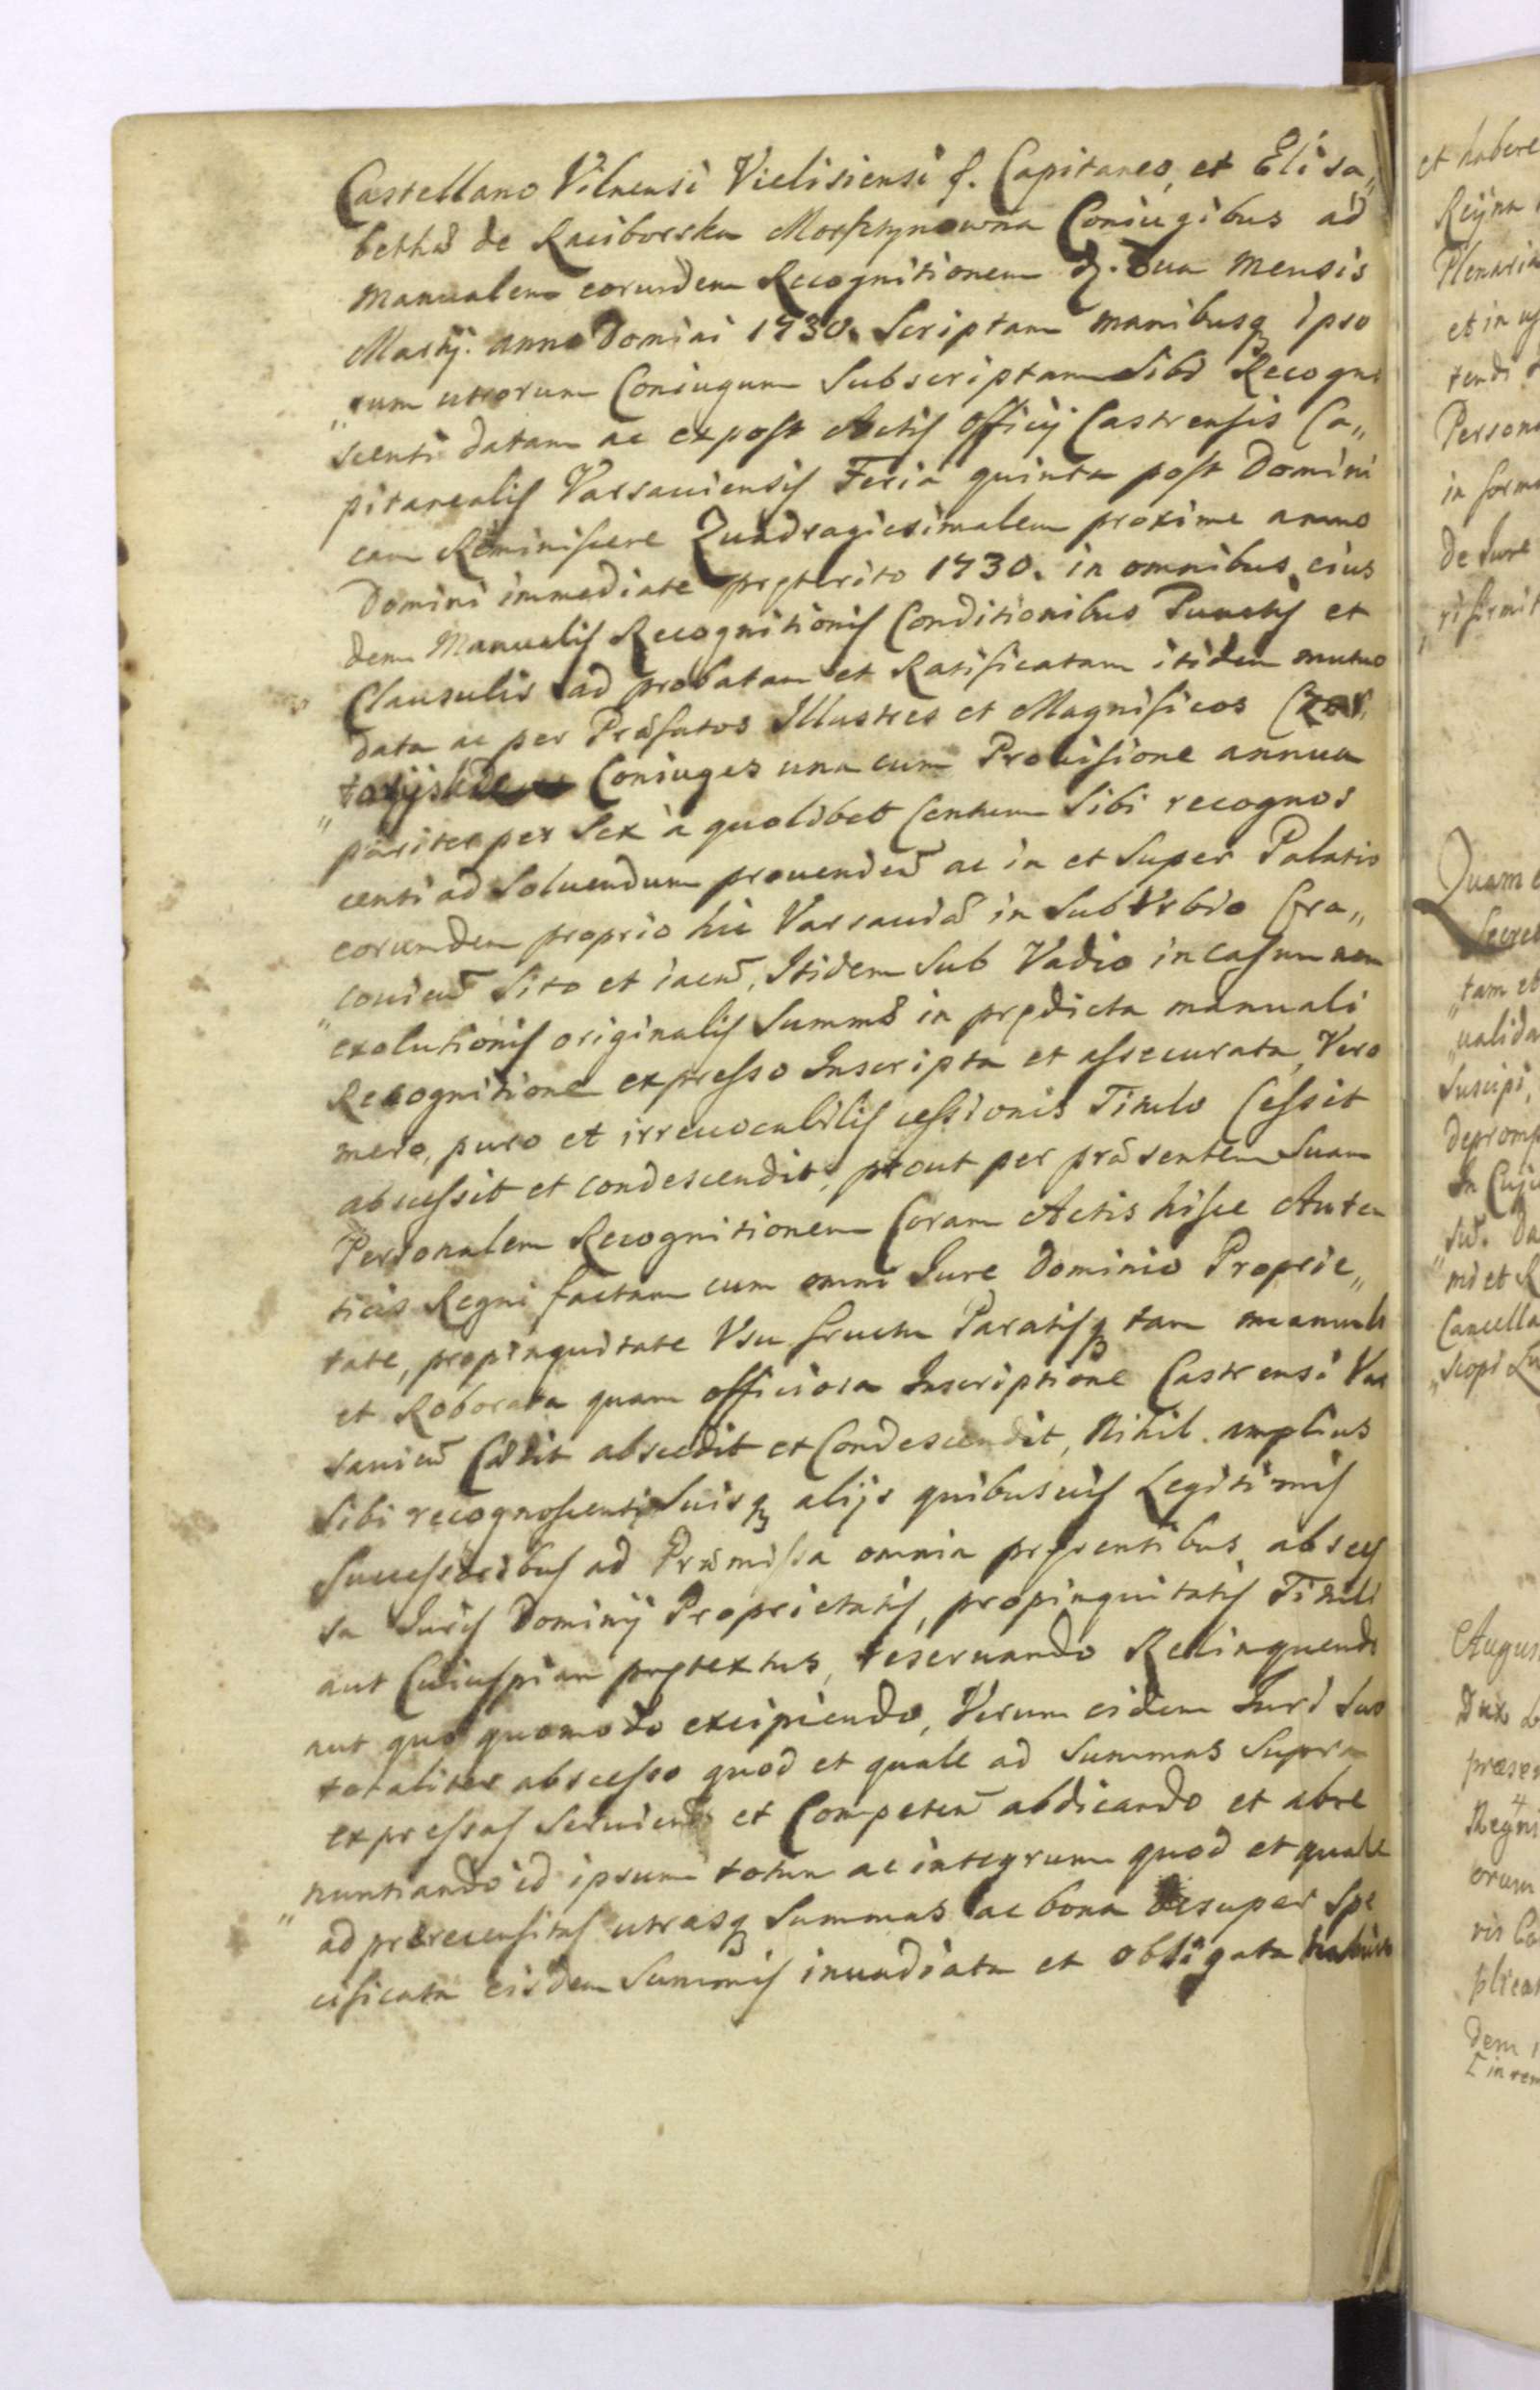 Castellano Vilnensi Vielisiensi &. Capitaneo, et Elisa„
bethæ de Raciborsko Morsztynowna Coniugibus ad
Manualem eorundem Recognitionem dua Mensis
Martij. anno Domini 1730. Scriptam manibusq ipso
„rum utrorum Coniugum Subscriptam Sibi Recogno
scenti datam ac expost Actis Officij Castrensis Ca„
pitanealis Varsauiensis Feria quinta post Domini
cam Reminiscere Quadragiesimalem proxime anno
Domini immediate pręterito 1730. in omnibus eius
dem Manualis Recognitionis Conditionibus Punctis et
Clausulis ad probatam et Ratificatam itidem mutuo
data ac per Præfatos Illustres et Magnificos Czar„
toryiskie Coniuges una cum Prouisione annua
„pariter per Sex à quolibet Centum Sibi recognos
centi ad Soluendum prouenden ac in et Super Palatio
eorumdem proprio hic Varsauiæ in SubUrbio Cra„
couien Sito et iacen, Itidem Sub Vadio in casum non
„exolutionis originalis Summæ in prędicta manuali
Recognitione expresso Inscripta et assecurata, Vero
mero, puro et irreuocabilis cessionis Titulo Cessit
abscessit et condescendit, prout per præsentem Suam
Personalem Recognitionem Coram Actis hisce Auten
ticis Regni factam cum omni Iure Dominio Proprie„
tate, propinquitate Usu fructu Paratisq tam manuali
et Roborata quam officiosa Inscriptione Castrensi Var
sauien Cedit abscedit et Condescendit, Nihil amplius
Sibi recognoscenti Suisq alijs quibusuis Legitimis
Successoribus ad Præmissa omnia pręsentibus absces
sa Iuris Dominij Proprietatis, propinquitatis Tituli
aut Cuiuspiam prętextus, reseruando Relinquendo
aut quo quomodo excipiendo, Verum eidem Iuri Suo
totaliter abscesso quod et quale ad Summas Supra
expressas Seruiend et Competen abdicando et abre
„nuntiando id ipsum totum ac integrum quod et quale
ad prærecensitas utrasq Summas ac bona desuper Spe
cificata eisdem Summis inuadiata et obligata habuit
et habere
Plenaria
et in
tendi
Person
in forma
de Iure
Quam
Secret
„tam et
„ualida
Suscipi,
deprom
In Cuju
„mi et R
Cancella
Augus
Dux
præsen
Regni
orum
Dem